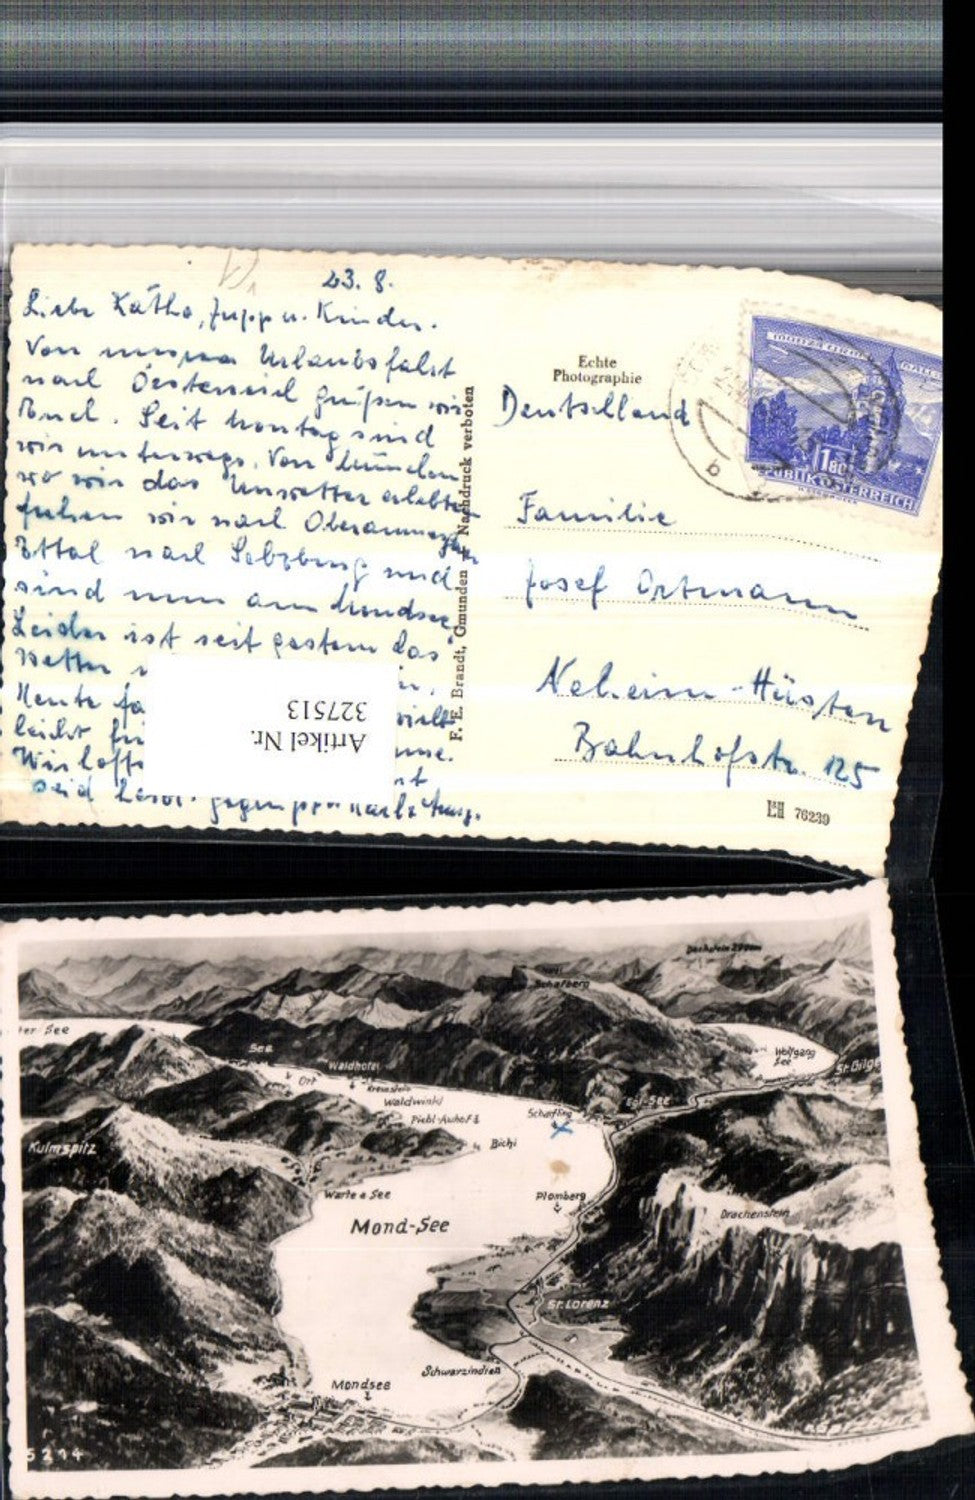 23. 8.
Liebe Käthe, Jupp u. Kinder.
Von unserer Urlaubsfahrt
nach Österreich grüßen wir
Euch. Seit Montag sind
wir unterwegs. Von München
wo wir das Unwetter erlebten
fuhren wir nach Oberammergau
Ettal nach Salzburg und
sind nun am Mondsee.
Leider ist seit gestern das
Wetter
Heute
leicht
Wir hoffen
seid
F. E. Brandt, Gmunden Nachdruck verboten
Echte
Photographie
Deutschland
1.80
REPUBLIK ÖSTERREICH
b
Familie
Josef Ortmann
Neheim-Hüsten
Bahnhofstr. 125
76239
Artikel Nr.
327513
Dachstein
Schafberg
ter See
See
Waldhotel
Wolfgang
See
St. Gilge
Ort
Kreuzstein
Waldwinkl
Egl-See
Pichl-Auhof
Scharfling
Kulmspitz
Bichl
Warte a See
Plomberg
Mond-See
Drachenstein
St. Lorenz
Schwarzindien
Mondsee
5214